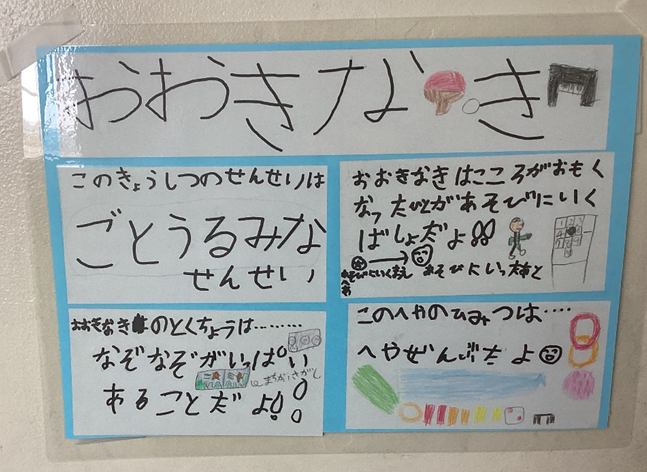 おおきなき
このきょうしつのせんせいは
ごとうるみな
せんせい
おおきなきはこころがおもく
なったひとがあそびにいく
ばしょだよ!!
あそびにいくまえ
あそびにいった
おおきなきのとくちょうは………
なぞなぞがいっぱい
まちがいさがし
あることだよ!!
このへやのひみつは‥‥
へやぜんぶだよ